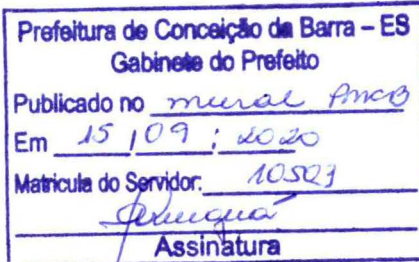 Prefeitura de Conceição da Barra – ES
Gabinete do Prefeito
Publicado no mural PMCB
Em 15 / 09 / 2020
Matricula do Servidor: 10503
Assinatura